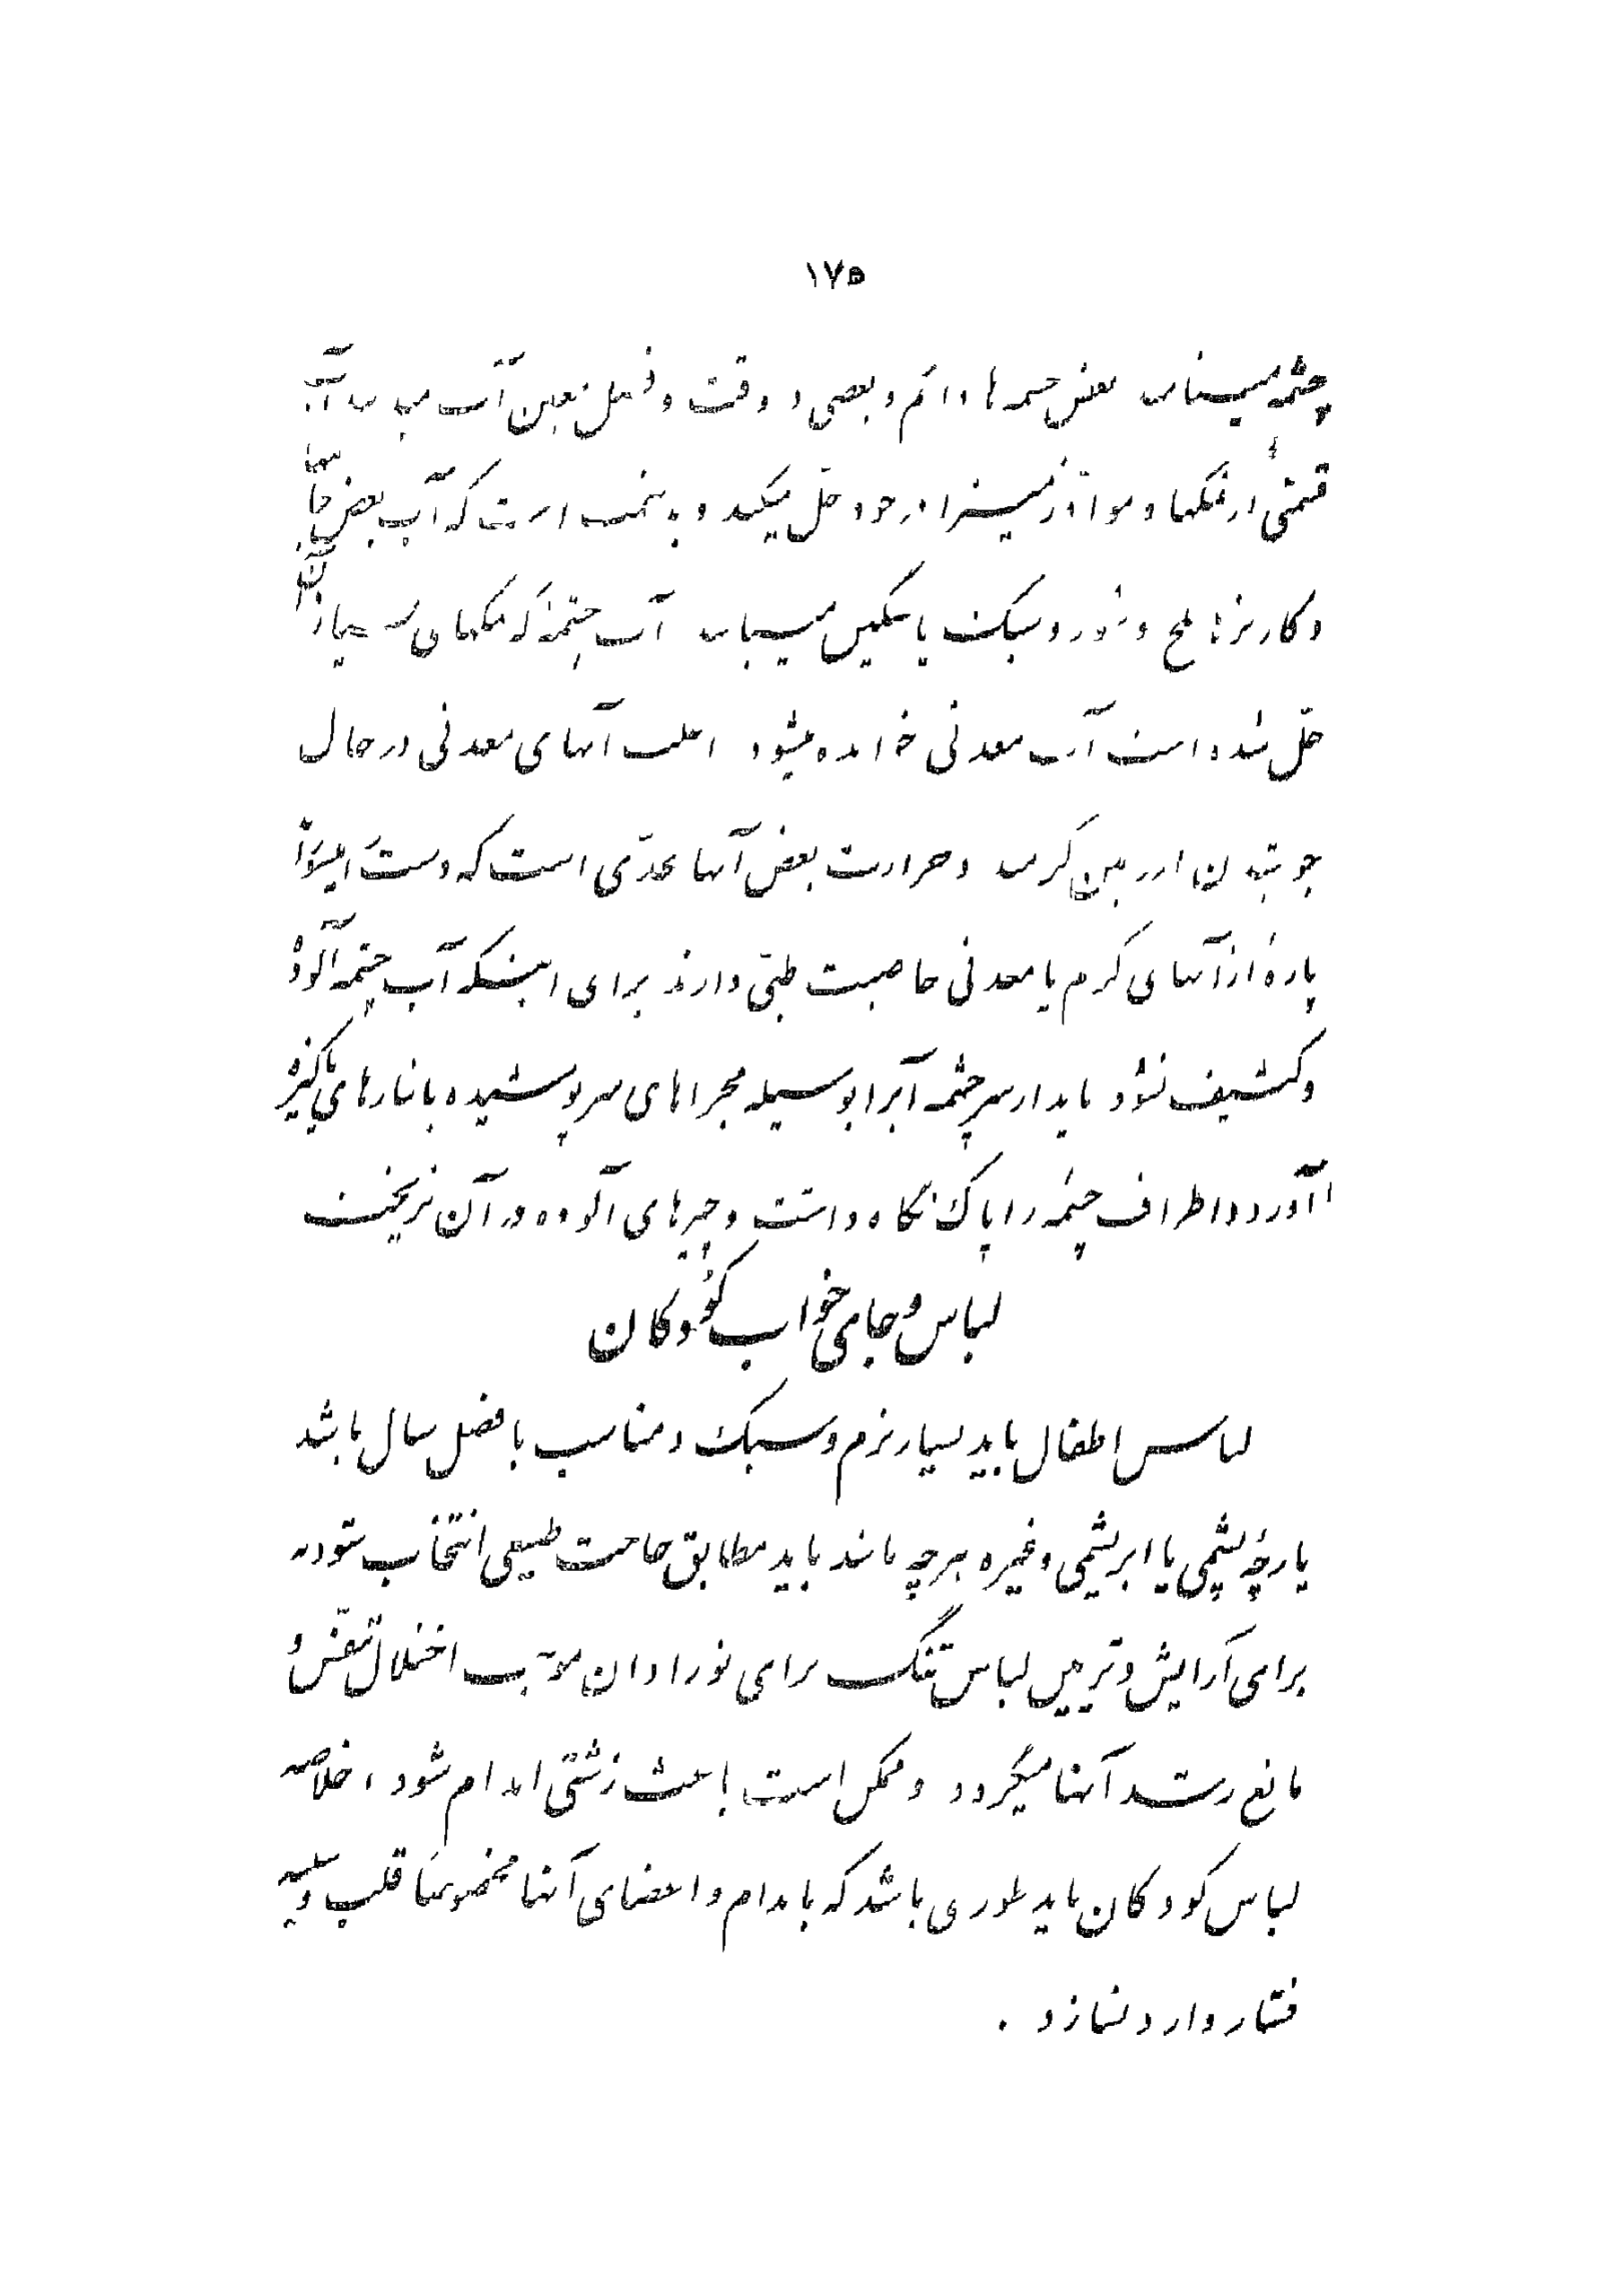 ۱۷۵
چشمه میباشد بعضی چشمه ها دائم و بعضی در وقت و فصل معین آب میدهد آب
قسمتی از نمکها و مواد زمین را در خود حل میکند و بدینجهت است که آب بعضی چاهها
و کاریزها تلخ و شور و سبک یا سنگین میباشد آب چشمهٔ که نمکهای بسیار در آن
حل شده است آب معدنی خوانده میشود اغلب آبهای معدنی در حال
جوشیدن از زمین گرمند و حرارت بعض آنها بحدّی است که دست را میسوزاند
پارهٔ از آبهای گرم یا معدنی خاصیت طبّی دارند برای اینکه آب چشمه آلوده
و کثیف نشود باید از سرچشمه آبرا بوسیله مجراهای سرپوشیده بانبارهای پاکیزه
آورد و اطراف چشمه را پاک نگاه داشت و چیزهای آلوده در آن نریخت
لباس و جای خواب کودکان
لباس اطفال باید بسیار نرم و سبک و مناسب با فصل سال باشد
پارچهٔ پشمی یا ابریشمی و غیره هرچه باشد باید مطابق حاجت طبیعی انتخاب شود نه
برای آرایش و تزیین لباس تنگ برای نوزادان موجب اختلال تنفّس و
مانع رشد آنها میگردد و ممکن است باعث زشتی اندام شود ، خلاصه
لباس کودکان باید طوری باشد که باندام و اعضای آنها مخصوصاً قلب و سینه
فشار وارد نسازد .